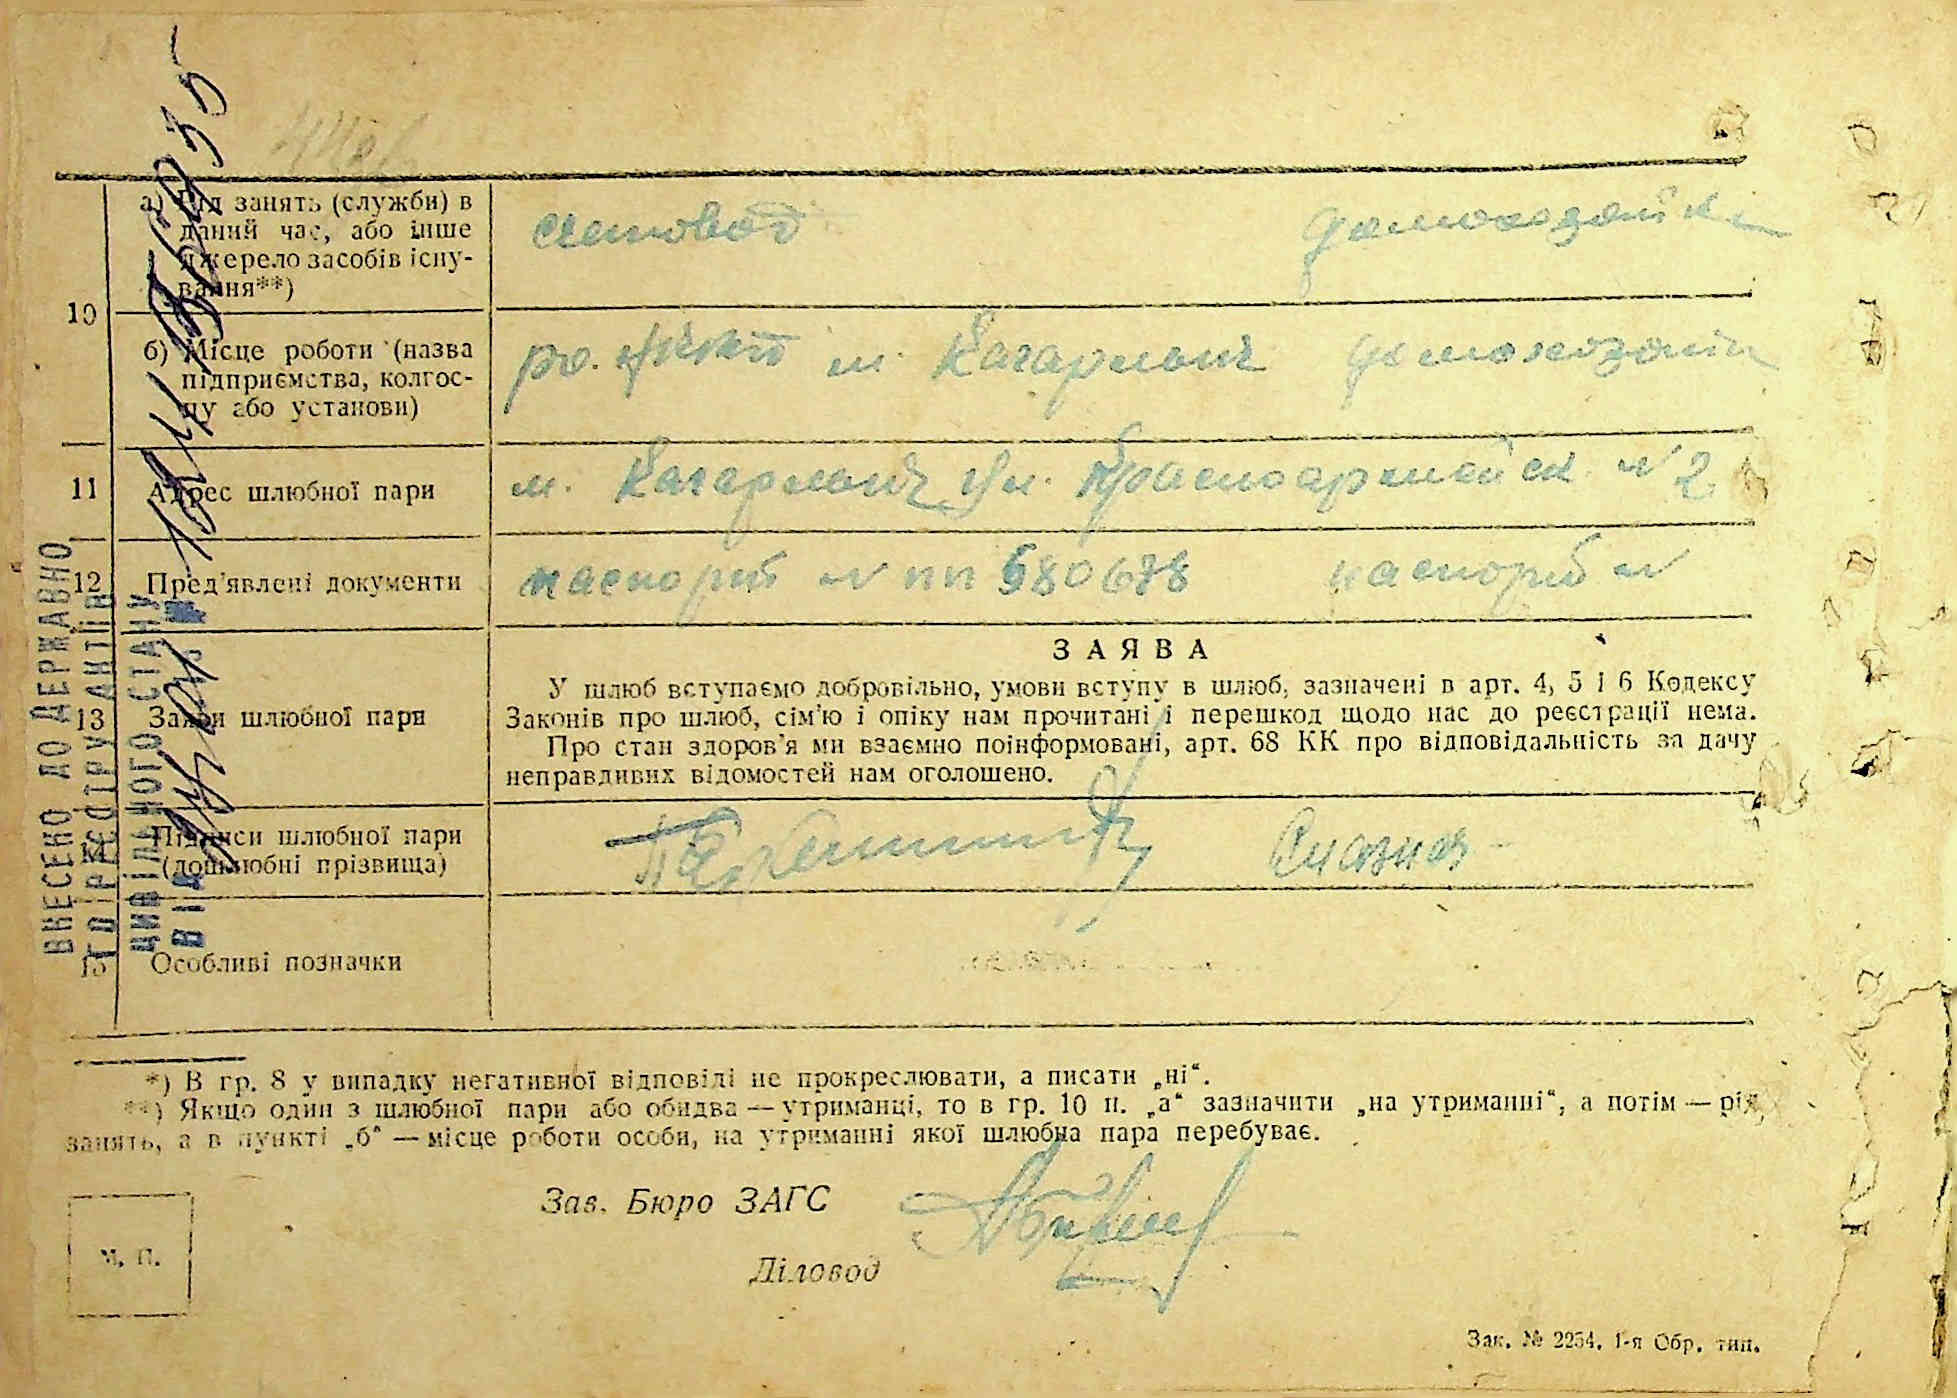 а) Рід занять (службн) в
даний час, або інше
джерело засобів існу-
вання**)
счетовод
домохозяйка
10
б) Місце роботи (назва
підприємства, колгос-
пу або установи)
м. Кагарлык
домохозяйк
11
Адрес шлюбної пари
м. Кагарлык ул. Красноармейск. № 2
12
Пред'явлені документи
паспорт № пп 580678 паспорт №
13
Заяви шлюбної пари
ЗАЯВА
У шлюб вступаємо добровільно, умови вступу в шлюб, зазначені в арт. 4, 5 і 6 Кодексу
Законів про шлюб, сім'ю і опіку нам прочитані і перешкод щодо нас до реєстрації нема.
Про стан здоров'я ми взаємно поінформовані, арт. 68 КК про відповідальність за дачу
неправдивих відомостей нам оголошено.
14
Підписи шлюбної пари
(дошлюбні прізвища)
15
Особливі позначки
ВНЕСЕНО ДО ДЕРЖАВНО
ГО РЕЄСТРУ АКТІВ
ЦИВІЛЬНОГО СТАНУ
ВІД
*) В гр. 8 у випадку негативної відповіді не прокреслювати, а писати „ні“.
**) Якщо один з шлюбної пари або обидва — утриманці, то в гр. 10 п. „а“ зазначити „на утриманні“, а потім — рід
занять, а в пункті „б“ — місце роботи особи, на утриманні якої шлюбна пара перебуває.
Зав. Бюро ЗАГС
Діловод
М. П.
Зак. № 2254. 1-я Обр. тип.